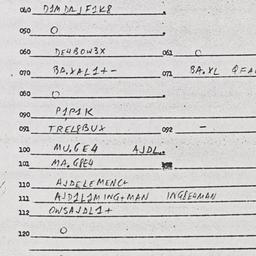 040 D1MDAJF1K8
050 O
060 DE4BOW3X 061 O
070 BA.XAL1+- 071 BA.XL
080 O
090 P1P1K
091 TREL8BUX 092 -
100 MU.GE4 AJDL.
101 MA.G8E4
110 AJDELEMENC+
111 AJD1L1MING+MAN ING8E4MAN
112 OWSAJDL1+
120 O